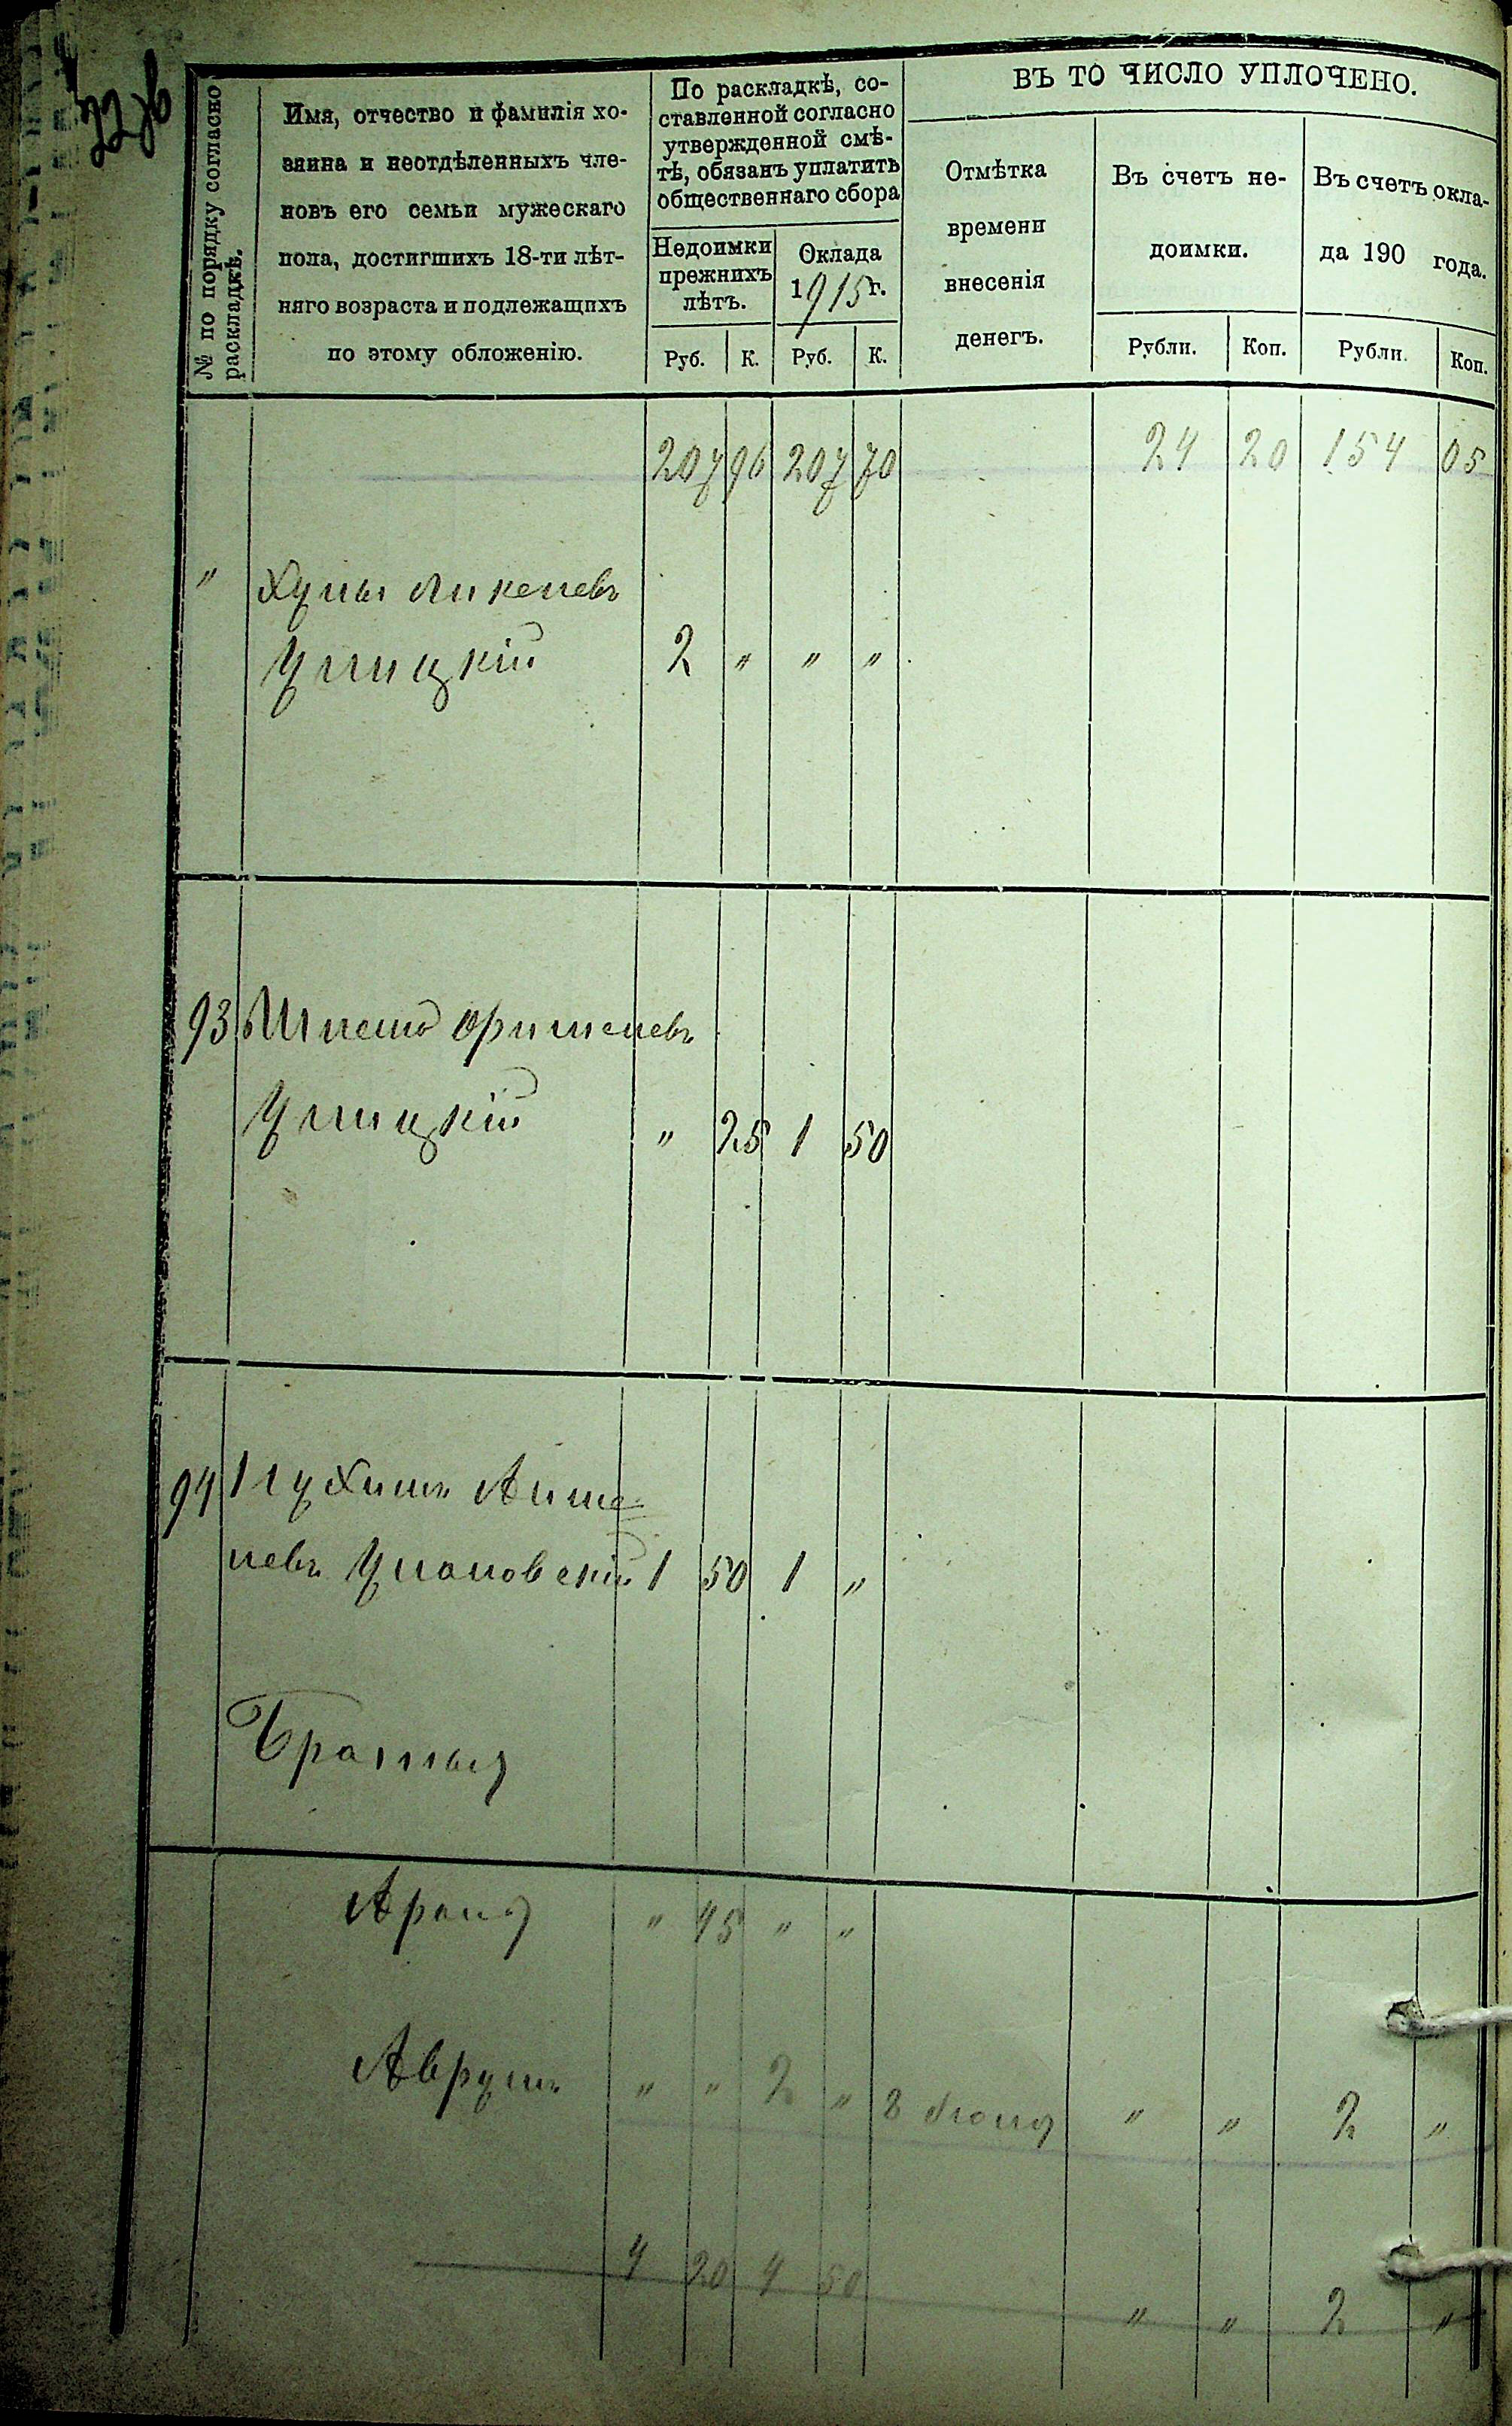 № по порядку согласно
раскладкѣ.
Имя, отчество и фамилія хо-
зяина и неотдѣленныхъ чле-
новъ его семьи мужескаго
пола, достигшихъ 18-ти лѣт-
няго возраста и подлежащихъ
по этому обложенію.
По раскладкѣ, со-
ставленной согласно
утвержденной смѣ-
тѣ, обязанъ уплатить
общественнаго сбора
Недоимки
прежнихъ
лѣтъ.
Оклада
1915 г.
Руб. К. Руб. К.
ВЪ ТО ЧИСЛО УПЛОЧЕНО.
Отмѣтка
времени
внесенія
денегъ.
Въ счетъ не-
доимки.
Рубли. Коп.
Въ счетъ окла-
да 190 года.
Рубли. Коп.
207 96 207 70 24 20 154 05
"
Улицкій 2 " " "
93
Улицкій " 25 1 50
94
1 50 1 "
Братья
" 45 " "
Аврумъ " " 2 " 8 " " 2 "
4 20 4 50 " " 2 "